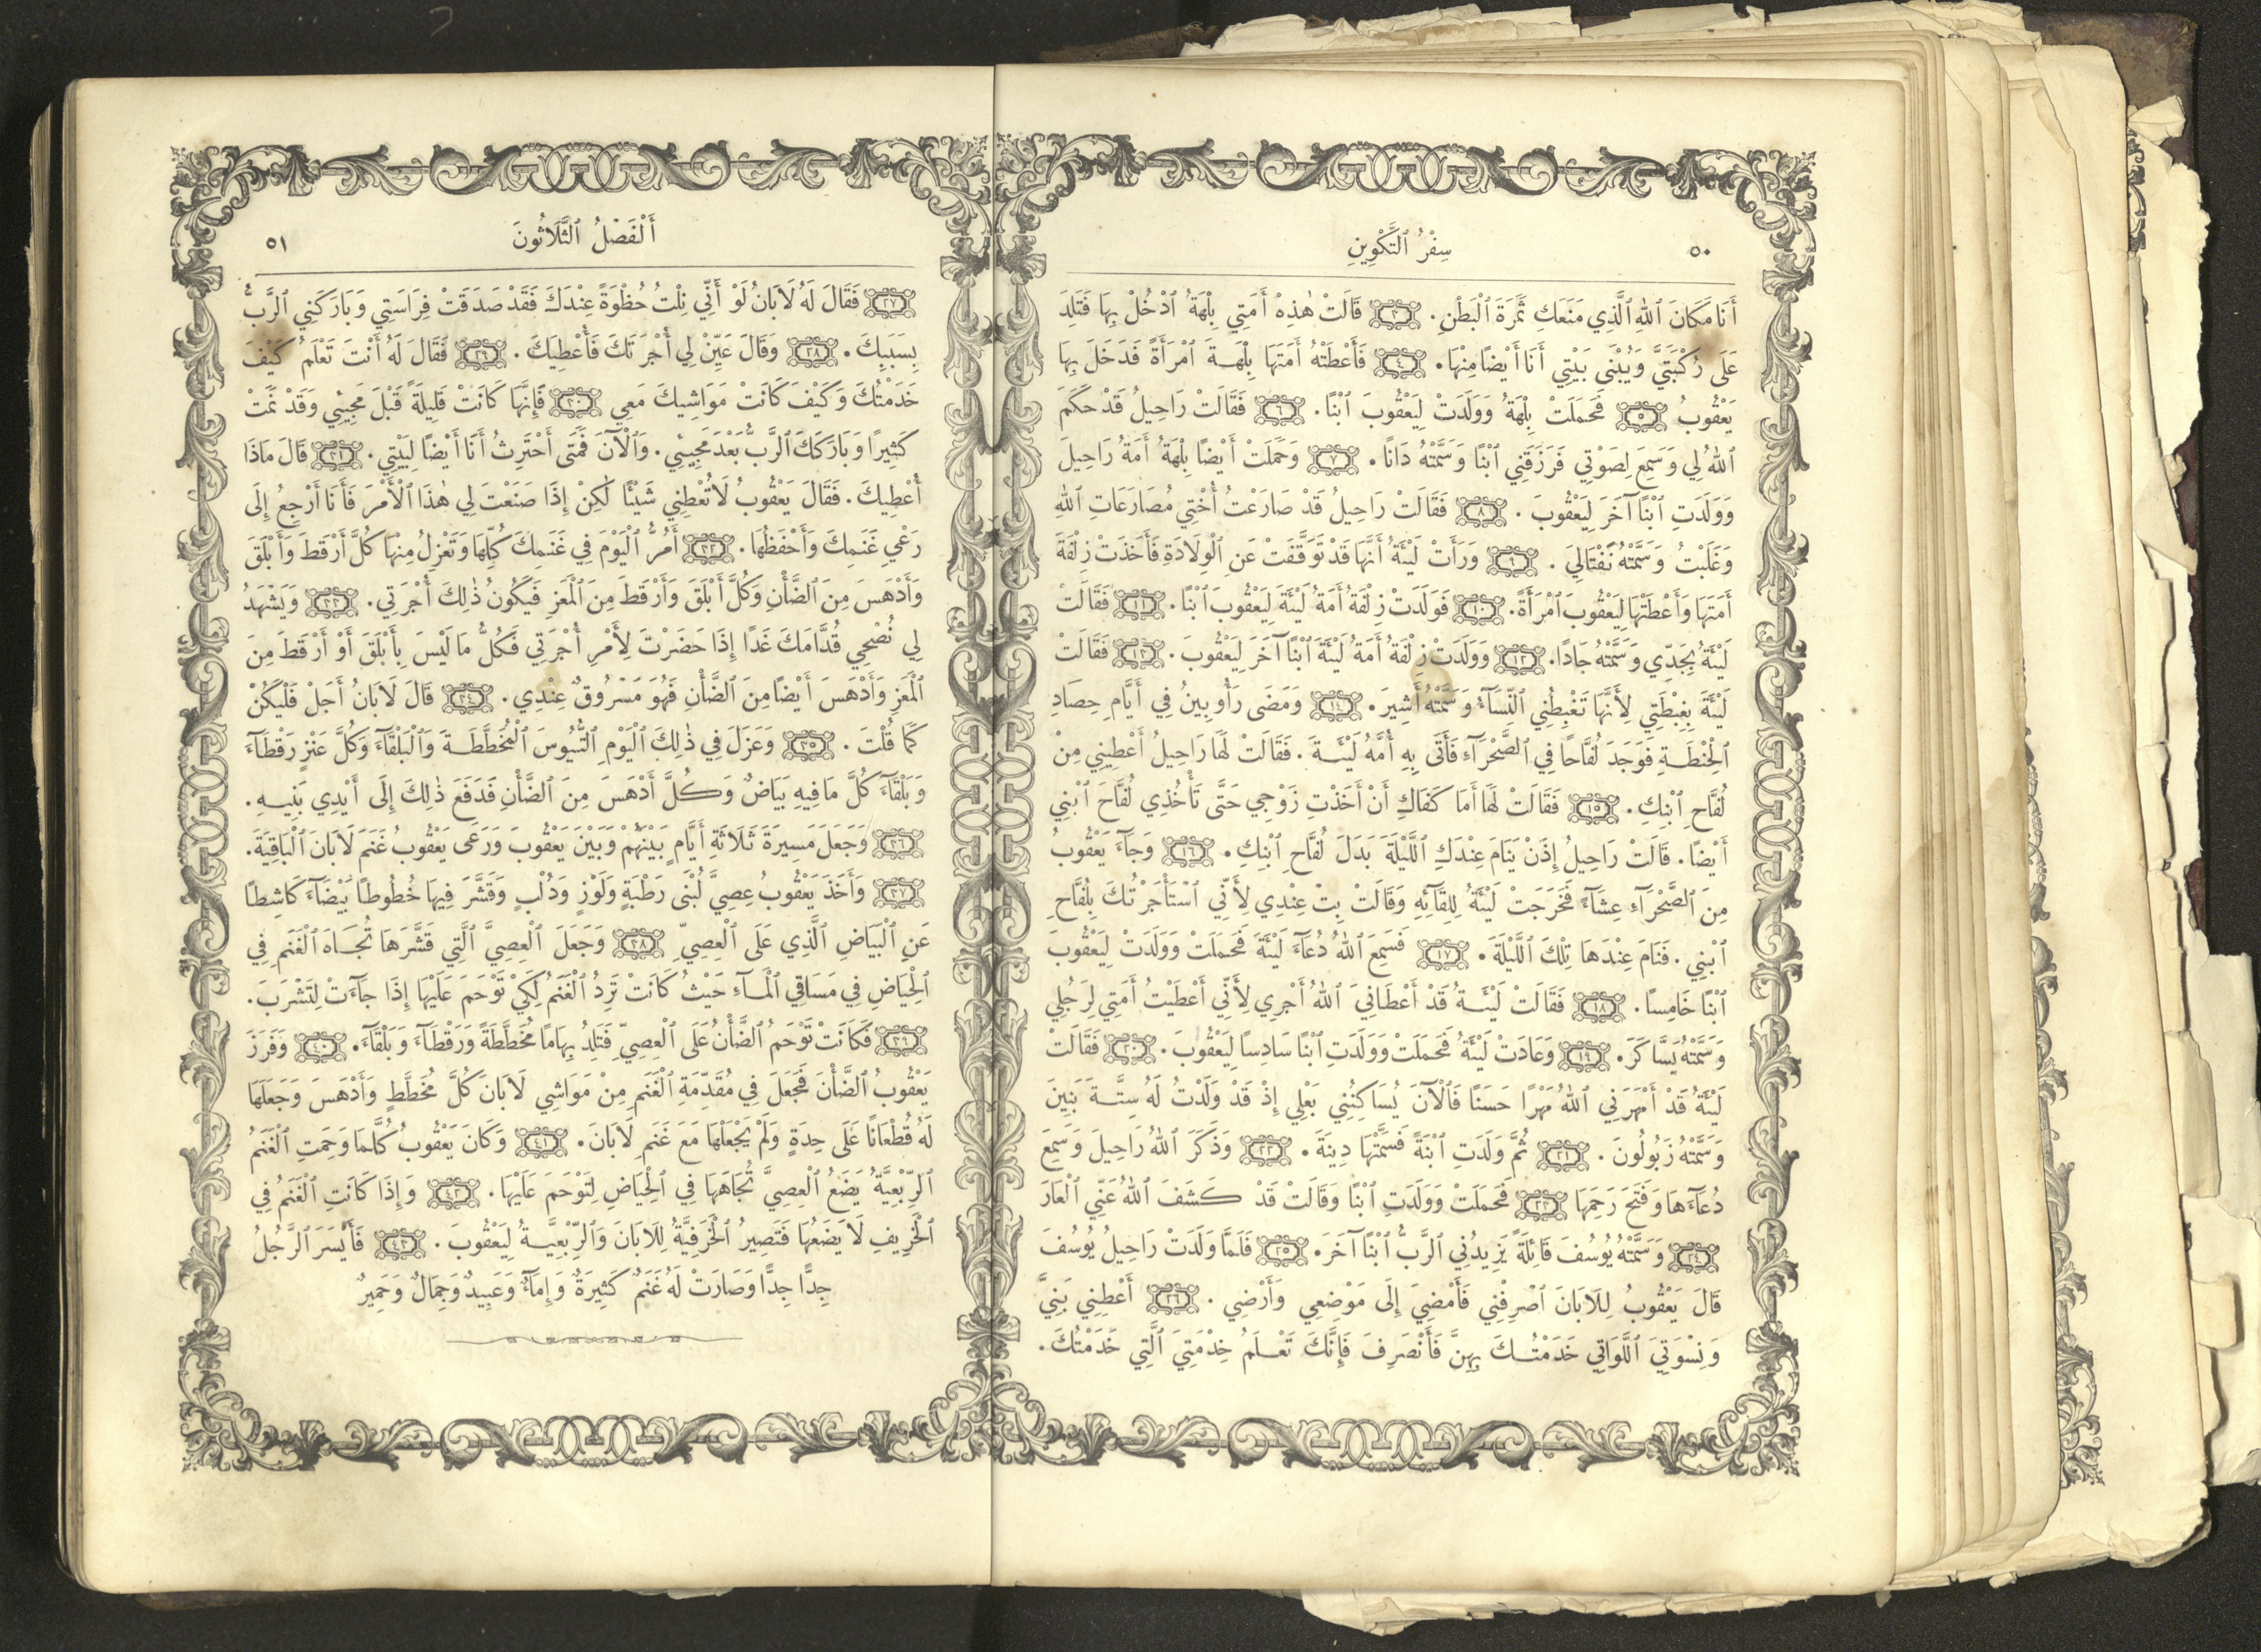 ٥٠
سِفْرُ ٱلتَّكْوِينِ
أَنَا مَكَانَ ٱللهِ ٱلَّذِي مَنَعَكِ ثَمَرَةَ ٱلْبَطْنِ. ٣ قَالَتْ هٰذِهْ أَمَتِي بِلْهَةُ ٱدْخُلْ بِهَا فَتَلِدَ
عَلَى رُكْبَتَيَّ وَيُبْنَى بَيْتِي أَنَا أَيْضًا مِنْهَا. ٤ فَأَعْطَتْهُ أَمَتَهَا بِلْهَةَ ٱمْرَأَةً فَدَخَلَ بِهَا
يَعْقُوبُ ٥ فَحَمَلَتْ بِلْهَةُ وَوَلَدَتْ لِيَعْقُوبَ ٱبْنًا. ٦ فَقَالَتْ رَاحِيلُ قَدْ حَكَمَ
ٱللهُ لِي وَسَمِعَ لِصَوْتِي فَرَزَقَنِي ٱبْنًا وَسَمَّتْهُ دَانًا. ٧ وَحَمَلَتْ أَيْضًا بِلْهَةُ أَمَةُ رَاحِيلَ
وَوَلَدَتِ ٱبْنًا آخَرَ لِيَعْقُوبَ. ٨ فَقَالَتْ رَاحِيلُ قَدْ صَارَعْتُ أُخْتِي مُصَارَعَاتِ ٱللهِ
وَغَلَبْتُ وَسَمَّتْهُ نَفْتَالِيَ. ٩ وَرَأَتْ لَيْئَةُ أَنَّهَا قَدْ تَوَقَّفَتْ عَنِ ٱلْوِلَادَةِ فَأَخَذَتْ زِلْفَةَ
أَمَتَهَا وَأَعْطَتْهَا لِيَعْقُوبَ ٱمْرَأَةً. ١٠ فَوَلَدَتْ زِلْفَةُ أَمَةُ لَيْئَةَ لِيَعْقُوبَ ٱبْنًا. ١١ فَقَالَتْ
لَيْئَةُ بِجَدِّي وَسَمَّتْهُ جَادًا. ١٢ وَوَلَدَتْ زِلْفَةُ أَمَةُ لَيْئَةَ ٱبْنًا آخَرَ لِيَعْقُوبَ. ١٣ فَقَالَتْ
لَيْئَةُ بِغِبْطَتِي لِأَنَّهَا تَغْبِطُنِي ٱلنِّسَآءُ وَسَمَّتْهُ أَشِيرَ. ١٤ وَمَضَى رَأُوبِينُ فِي أَيَّامِ حِصَادِ
ٱلْحِنْطَةِ فَوَجَدَ لُفَّاحًا فِي ٱلصَّحْرَآءِ فَأَتَى بِهِ أُمَّهُ لَيْئَةَ. فَقَالَتْ لَهَا رَاحِيلُ أَعْطِينِي مِنْ
لُفَّاحِ ٱبْنِكِ. ١٥ فَقَالَتْ لَهَا أَمَا كَفَاكِ أَنْ أَخَذْتِ زَوْجِي حَتَّى تَأْخُذِي لُفَّاحَ ٱبْنِي
أَيْضًا. قَالَتْ رَاحِيلُ إِذَنْ يَنَامَ عِنْدَكِ ٱللَّيْلَةَ بَدَلَ لُفَّاحِ ٱبْنِكِ. ١٦ وَجَآءَ يَعْقُوبُ
مِنَ ٱلصَّحْرَآءِ عِشَآءً فَخَرَجَتْ لَيْئَةُ لِلِقَآئِهِ وَقَالَتْ بِتْ عِنْدِي لِأَنِّي ٱسْتَأْجَرْتُكَ بِلُفَّاحِ
ٱبْنِي. فَنَامَ عِنْدَهَا تِلْكَ ٱللَّيْلَةَ. ١٧ فَسَمِعَ ٱللهُ دُعَآءَ لَيْئَةَ فَحَمَلَتْ وَوَلَدَتْ لِيَعْقُوبَ
ٱبْنًا خَامِسًا. ١٨ فَقَالَتْ لَيْئَةُ قَدْ أَعْطَانِيَ ٱللهُ أَجْرِي لِأَنِّي أَعْطَيْتُ أَمَتِي لِرَجُلِي
وَسَمَّتْهُ يَسَّاكَرَ. ١٩ وَعَادَتْ لَيْئَةُ فَحَمَلَتْ وَوَلَدَتِ ٱبْنًا سَادِسًا لِيَعْقُوبَ. ٢٠ فَقَالَتْ
لَيْئَةُ قَدْ أَمْهَرَنِي ٱللهُ مَهْرًا حَسَنًا فَٱلْآنَ يُسَاكِنُنِي بَعْلِي إِذْ قَدْ وَلَدْتُ لَهُ سِتَّةَ بَنِينَ
وَسَمَّتْهُ زَبُولُونَ. ٢١ ثُمَّ وَلَدَتِ ٱبْنَةً فَسَمَّتْهَا دِينَةَ. ٢٢ وَذَكَرَ ٱللهُ رَاحِيلَ وَسَمِعَ
دُعَآءَهَا وَفَتَحَ رَحِمَهَا ٢٣ فَحَمَلَتْ وَوَلَدَتِ ٱبْنًا وَقَالَتْ قَدْ كَشَفَ ٱللهُ عَنِّي ٱلْعَارَ
٢٤ وَسَمَّتْهُ يُوسُفَ قَائِلَةً يَزِيدُنِي ٱلرَّبُّ ٱبْنًا آخَرَ. ٢٥ فَلَمَّا وَلَدَتْ رَاحِيلُ يُوسُفَ
قَالَ يَعْقُوبُ لِلَابَانَ ٱصْرِفْنِي فَأَمْضِيَ إِلَى مَوْضِعِي وَأَرْضِي. ٢٦ أَعْطِنِي بَنِيَّ
وَنِسْوَتِيَ ٱللَّوَاتِي خَدَمْتُكَ بِهِنَّ فَأَنْصَرِفَ فَإِنَّكَ تَعْلَمُ خِدْمَتِيَ ٱلَّتِي خَدَمْتُكَ.
أَلْفَصْلُ ٱلثَّلَاثُونَ
٥١
٢٧ فَقَالَ لَهُ لَابَانُ لَوْ أَنِّي نِلْتُ حُظْوَةً عِنْدَكَ فَقَدْ صَدَقَتْ فِرَاسَتِي وَبَارَكَنِي ٱلرَّبُّ
بِسَبَبِكَ. ٢٨ وَقَالَ عَيِّنْ لِي أُجْرَتَكَ فَأُعْطِيَكَ. ٢٩ فَقَالَ لَهُ أَنْتَ تَعْلَمُ كَيْفَ
خَدَمْتُكَ وَكَيْفَ كَانَتْ مَوَاشِيكَ مَعِي ٣٠ فَإِنَّهَا كَانَتْ قَلِيلَةً قَبْلَ مَجِيئِي وَقَدْ نَمَتْ
كَثِيرًا وَبَارَكَكَ ٱلرَّبُّ بَعْدَ مَجِيئِي. وَٱلْآنَ فَمَتَى أَحْتَرِثُ أَنَا أَيْضًا لِبَيْتِي. ٣١ قَالَ مَاذَا
أُعْطِيكَ. فَقَالَ يَعْقُوبُ لَا تُعْطِنِي شَيْئًا لٰكِنْ إِذَا صَنَعْتَ لِي هٰذَا ٱلْأَمْرَ فَأَنَا أَرْجِعُ إِلَى
رَعْيِ غَنَمِكَ وَأَحْفَظُهَا. ٣٢ أَمُرُّ ٱلْيَوْمَ فِي غَنَمِكَ كُلِّهَا وَتَعْزِلُ مِنْهَا كُلَّ أَرْقَطَ وَأَبْلَقَ
وَأَدْهَسَ مِنَ ٱلضَّأْنِ وَكُلَّ أَبْلَقَ وَأَرْقَطَ مِنَ ٱلْمَعَزِ فَيَكُونُ ذٰلِكَ أُجْرَتِي. ٣٣ وَيَشْهَدُ
لِي نُصْحِي قُدَّامَكَ غَدًا إِذَا حَضَرْتَ لِأَمْرِ أُجْرَتِي فَكُلُّ مَا لَيْسَ بِأَبْلَقَ أَوْ أَرْقَطَ مِنَ
ٱلْمَعَزِ وَأَدْهَسَ أَيْضًا مِنَ ٱلضَّأْنِ فَهُوَ مَسْرُوقٌ عِنْدِي. ٣٤ قَالَ لَابَانُ أَجَلْ فَلْيَكُنْ
كَمَا قُلْتَ. ٣٥ وَعَزَلَ فِي ذٰلِكَ ٱلْيَوْمِ ٱلتُّيُوسَ ٱلْمُخَطَّطَةَ وَٱلْبَلْقَآءَ وَكُلَّ عَنْزٍ رَقْطَآءَ
وَبَلْقَآءَ كُلَّ مَا فِيهِ بَيَاضٌ وَكُلَّ أَدْهَسَ مِنَ ٱلضَّأْنِ فَدَفَعَ ذٰلِكَ إِلَى أَيْدِي بَنِيهِ.
٣٦ وَجَعَلَ مَسِيرَةَ ثَلَاثَةِ أَيَّامٍ بَيْنَهُمْ وَبَيْنَ يَعْقُوبَ وَرَعَى يَعْقُوبُ غَنَمَ لَابَانَ ٱلْبَاقِيَةَ.
٣٧ وَأَخَذَ يَعْقُوبُ عِصِيَّ لُبْنَى رَطْبَةٍ وَلَوْزٍ وَدُلْبٍ وَقَشَّرَ فِيهَا خُطُوطًا بَيْضَآءَ كَاشِطًا
عَنِ ٱلْبَيَاضِ ٱلَّذِي عَلَى ٱلْعِصِيِّ ٣٨ وَجَعَلَ ٱلْعِصِيَّ ٱلَّتِي قَشَّرَهَا تُجَاهَ ٱلْغَنَمِ فِي
ٱلْحِيَاضِ فِي مَسَاقِي ٱلْمَآءِ حَيْثُ كَانَتْ تَرِدُ ٱلْغَنَمُ لِكَيْ تَوْحَمَ عَلَيْهَا إِذَا جَآءَتْ لِتَشْرَبَ.
٣٩ فَكَانَتْ تَوْحَمُ ٱلضَّأْنُ عَلَى ٱلْعِصِيِّ فَتَلِدُ بِهَامًا مُخَطَّطَةً وَرَقْطَآءَ وَبَلْقَآءَ. ٤٠ وَفَرَزَ
يَعْقُوبُ ٱلضَّأْنَ فَجَعَلَ فِي مُقَدِّمَةِ ٱلْغَنَمِ مِنْ مَوَاشِي لَابَانَ كُلَّ مُخَطَّطٍ وَأَدْهَسَ وَجَعَلَهَا
لَهُ قُطْعَانًا عَلَى حِدَةٍ وَلَمْ يَجْعَلْهَا مَعَ غَنَمِ لَابَانَ. ٤١ وَكَانَ يَعْقُوبُ كُلَّمَا وَحِمَتِ ٱلْغَنَمُ
ٱلرِّبْعِيَّةُ يَضَعُ ٱلْعِصِيَّ تُجَاهَهَا فِي ٱلْحِيَاضِ لِتَوْحَمَ عَلَيْهَا. ٤٢ وَإِذَا كَانَتِ ٱلْغَنَمُ فِي
ٱلْخَرِيفِ لَا يَضَعُهَا فَتَصِيرُ ٱلْخَرَفِيَّةُ لِلَابَانَ وَٱلرِّبْعِيَّةُ لِيَعْقُوبَ. ٤٣ فَأَيْسَرَ ٱلرَّجُلُ
جِدًّا جِدًّا وَصَارَتْ لَهُ غَنَمٌ كَثِيرَةٌ وَإِمَآءٌ وَعَبِيدٌ وَجِمَالٌ وَحَمِيرٌ